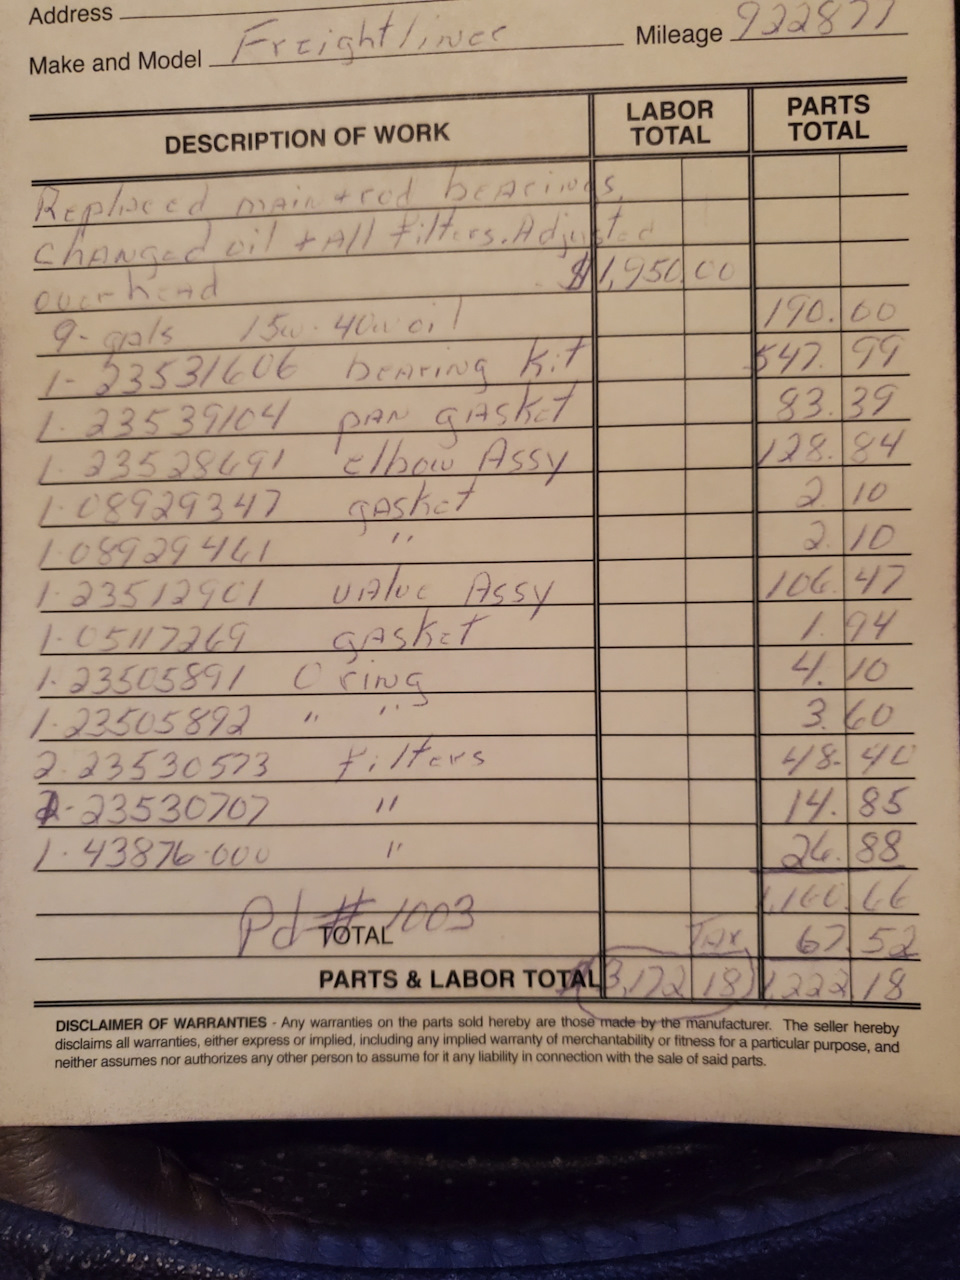 Address
Make and Model Freightliner Mileage 922877
DESCRIPTION OF WORK LABOR TOTAL PARTS TOTAL
Replaced main + rod bearings,
Changed oil + All filters. Adjusted
overhead $1,950.00
9- gals 15w-40w oil 190.00
1- 23531606 bearing Kit 547.99
1- 23539104 pan gasket 83.39
1- 23528691 elbow Assy 128.84
1- 08929347 gasket 2.10
1- 08929461 " 2.10
1- 23512901 valve Assy 106.47
1- 05117269 gasket 1.94
1- 23505891 O ring 4.10
1- 23505892 " " 3.60
2- 23530573 filters 48.40
23530707 " 14.85
1- 43876-000 " 26.88
1,160.66
Pd # 1003
TOTAL Tax 52
PARTS & LABOR TOTAL 3,172 18 1,222 18
DISCLAIMER OF WARRANTIES - Any warranties on the parts sold hereby are those made by the manufacturer. The seller hereby
disclaims all warranties, either express or implied, including any implied warranty of merchantability or fitness for a particular purpose, and
neither assumes nor authorizes any other person to assume for it any liability in connection with the sale of said parts.